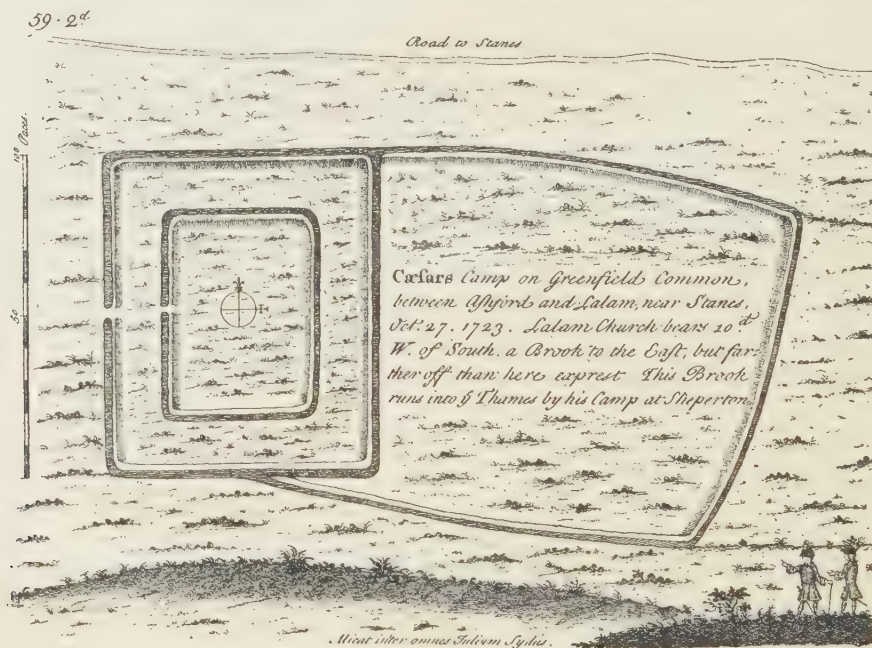 59. 2d
Road to Stanes
100 Paces.
50
Cæsars Camp on Greenfield Common,
between Ashford and Lalam, near Stanes,
Oct. 27. 1723. Lalam Church bears 20d
W. of South. a Brook to the East, but far-
ther off than here exprest This Brook
runs into ye Thames by his Camp at Sheperton
Micat inter omnes Julium Sydus.